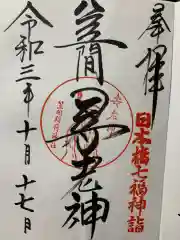 奉拝
日本橋七福神詣
笠間
寿老神
令和三年十月十七日